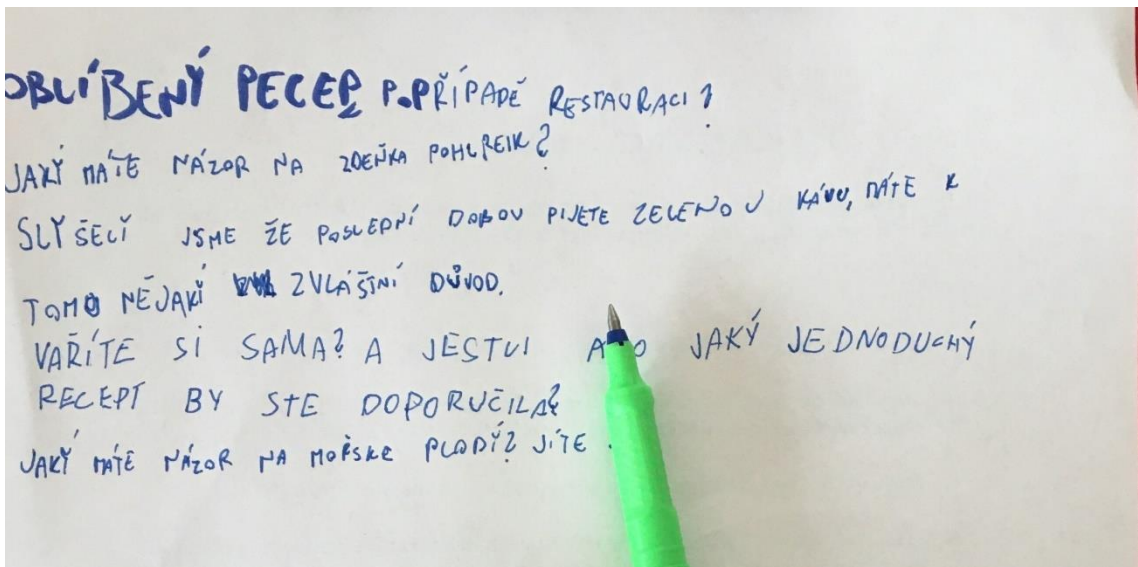 OBLÍBENÝ PECEP P.PŘÍPADĚ RESTAURACI?
JAKÝ MÁTE NÁZOR NA ZDEŇKA POHLREIK?
SLYŠELÍ JSME ŽE POSLEDNÍ DOBOU PIJETE ZELENOU KÁVU, MÁTE K
TOMU NĚJAKÍ ZVLÁŠTNÍ DŮVOD.
VAŘÍTE SI SAMA? A JESTLI JAKÝ JEDNODUCHÝ
RECEPT BY STE DOPORUČILA?
JAKÝ MÁTE NÁZOR NA MOŘSKE PLODÝ? JÍTE